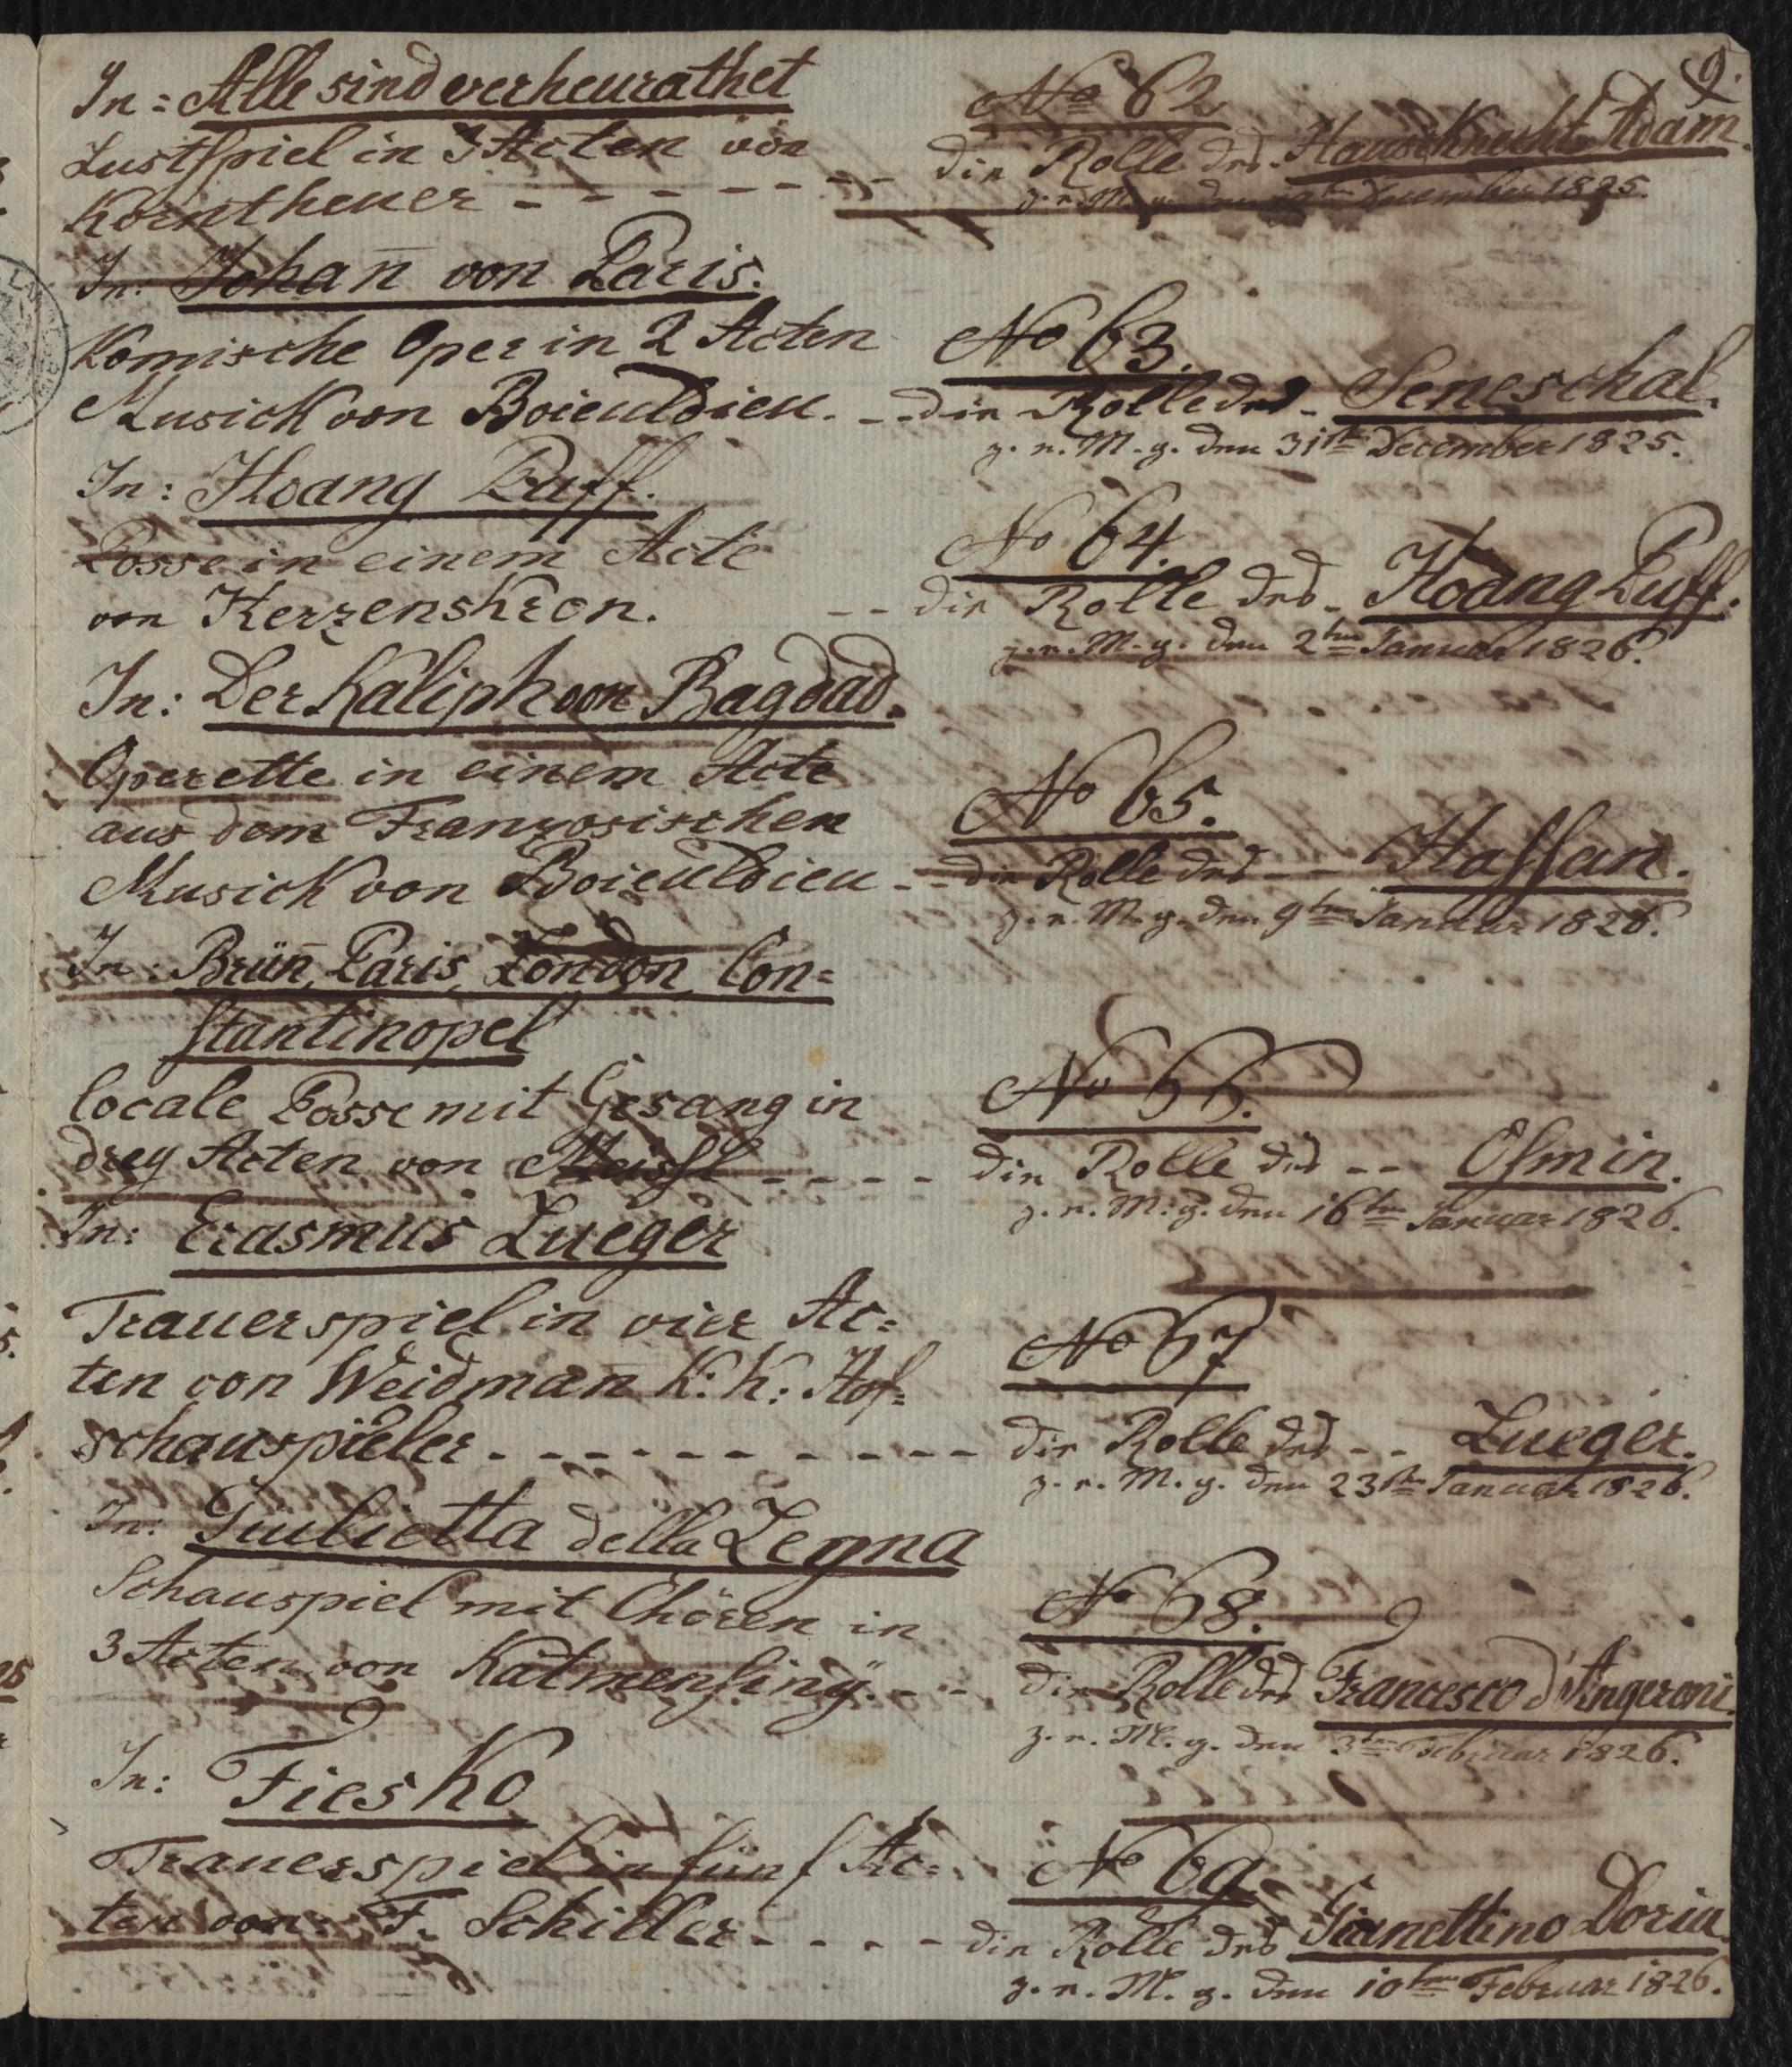 9.
In: Alle sind verheurathet
No 62
Lustspiel in 3 Acten von
Korntheuer - - - - - - - - die Rolle des Hausknecht Adam.
z. e. M. g. den December 1825.
In: Johan̄ von Paris.
Komische Oper in 2 Acten
No 63.
Musick von Boieuldieu. - - die Rolle des - Seneschal.
z. e. M. g. den 31ten December 1825.
In: Hoang Puff.
Posse in einem Acte
No 64.
von Herzenskron. - - die Rolle des - Hoang Puff.
z. e. M. g. den 2ten Januar 1826.
In: Der Kaliph von Bagdad.
Operette in einem Acte
No 65.
aus dem Franzosischen
Musick von Boieuldieu - - die Rolle des - - Hassan.
z. e. M. g. den 9ten Januar 1826.
In: Brün̄, Paris, London, Con=
stantinopel
locale Posse mit Gesang in
No 66.
drey Acten von Meisl - - - - die Rolle des - - Osmin.
z. e. M. g. den 16ten Januar 1826.
In: Erasmus Lueger
Trauerspiel in vier Ac=
No 67
ten von Weidman̄ K: K: Hof=
schauspieler - - - - - - - - - - die Rolle des - - Lueger.
z. e. M. g. den 23ten Januar 1826.
In: Giulietta della Zegna
Schauspiel mit Chören in
No 68.
3 Acten von Katmensing. - - die Rolle des Francesco d'Angeroni.
z. e. M. g. den 3ten Februar 1826.
In: Fiesko
Trauerspiel in fünf Ac=
No 69
ten von F. Schiller - - - - die Rolle des Gianettino Doria.
z. e. M. g. den 10ten Februar 1826.